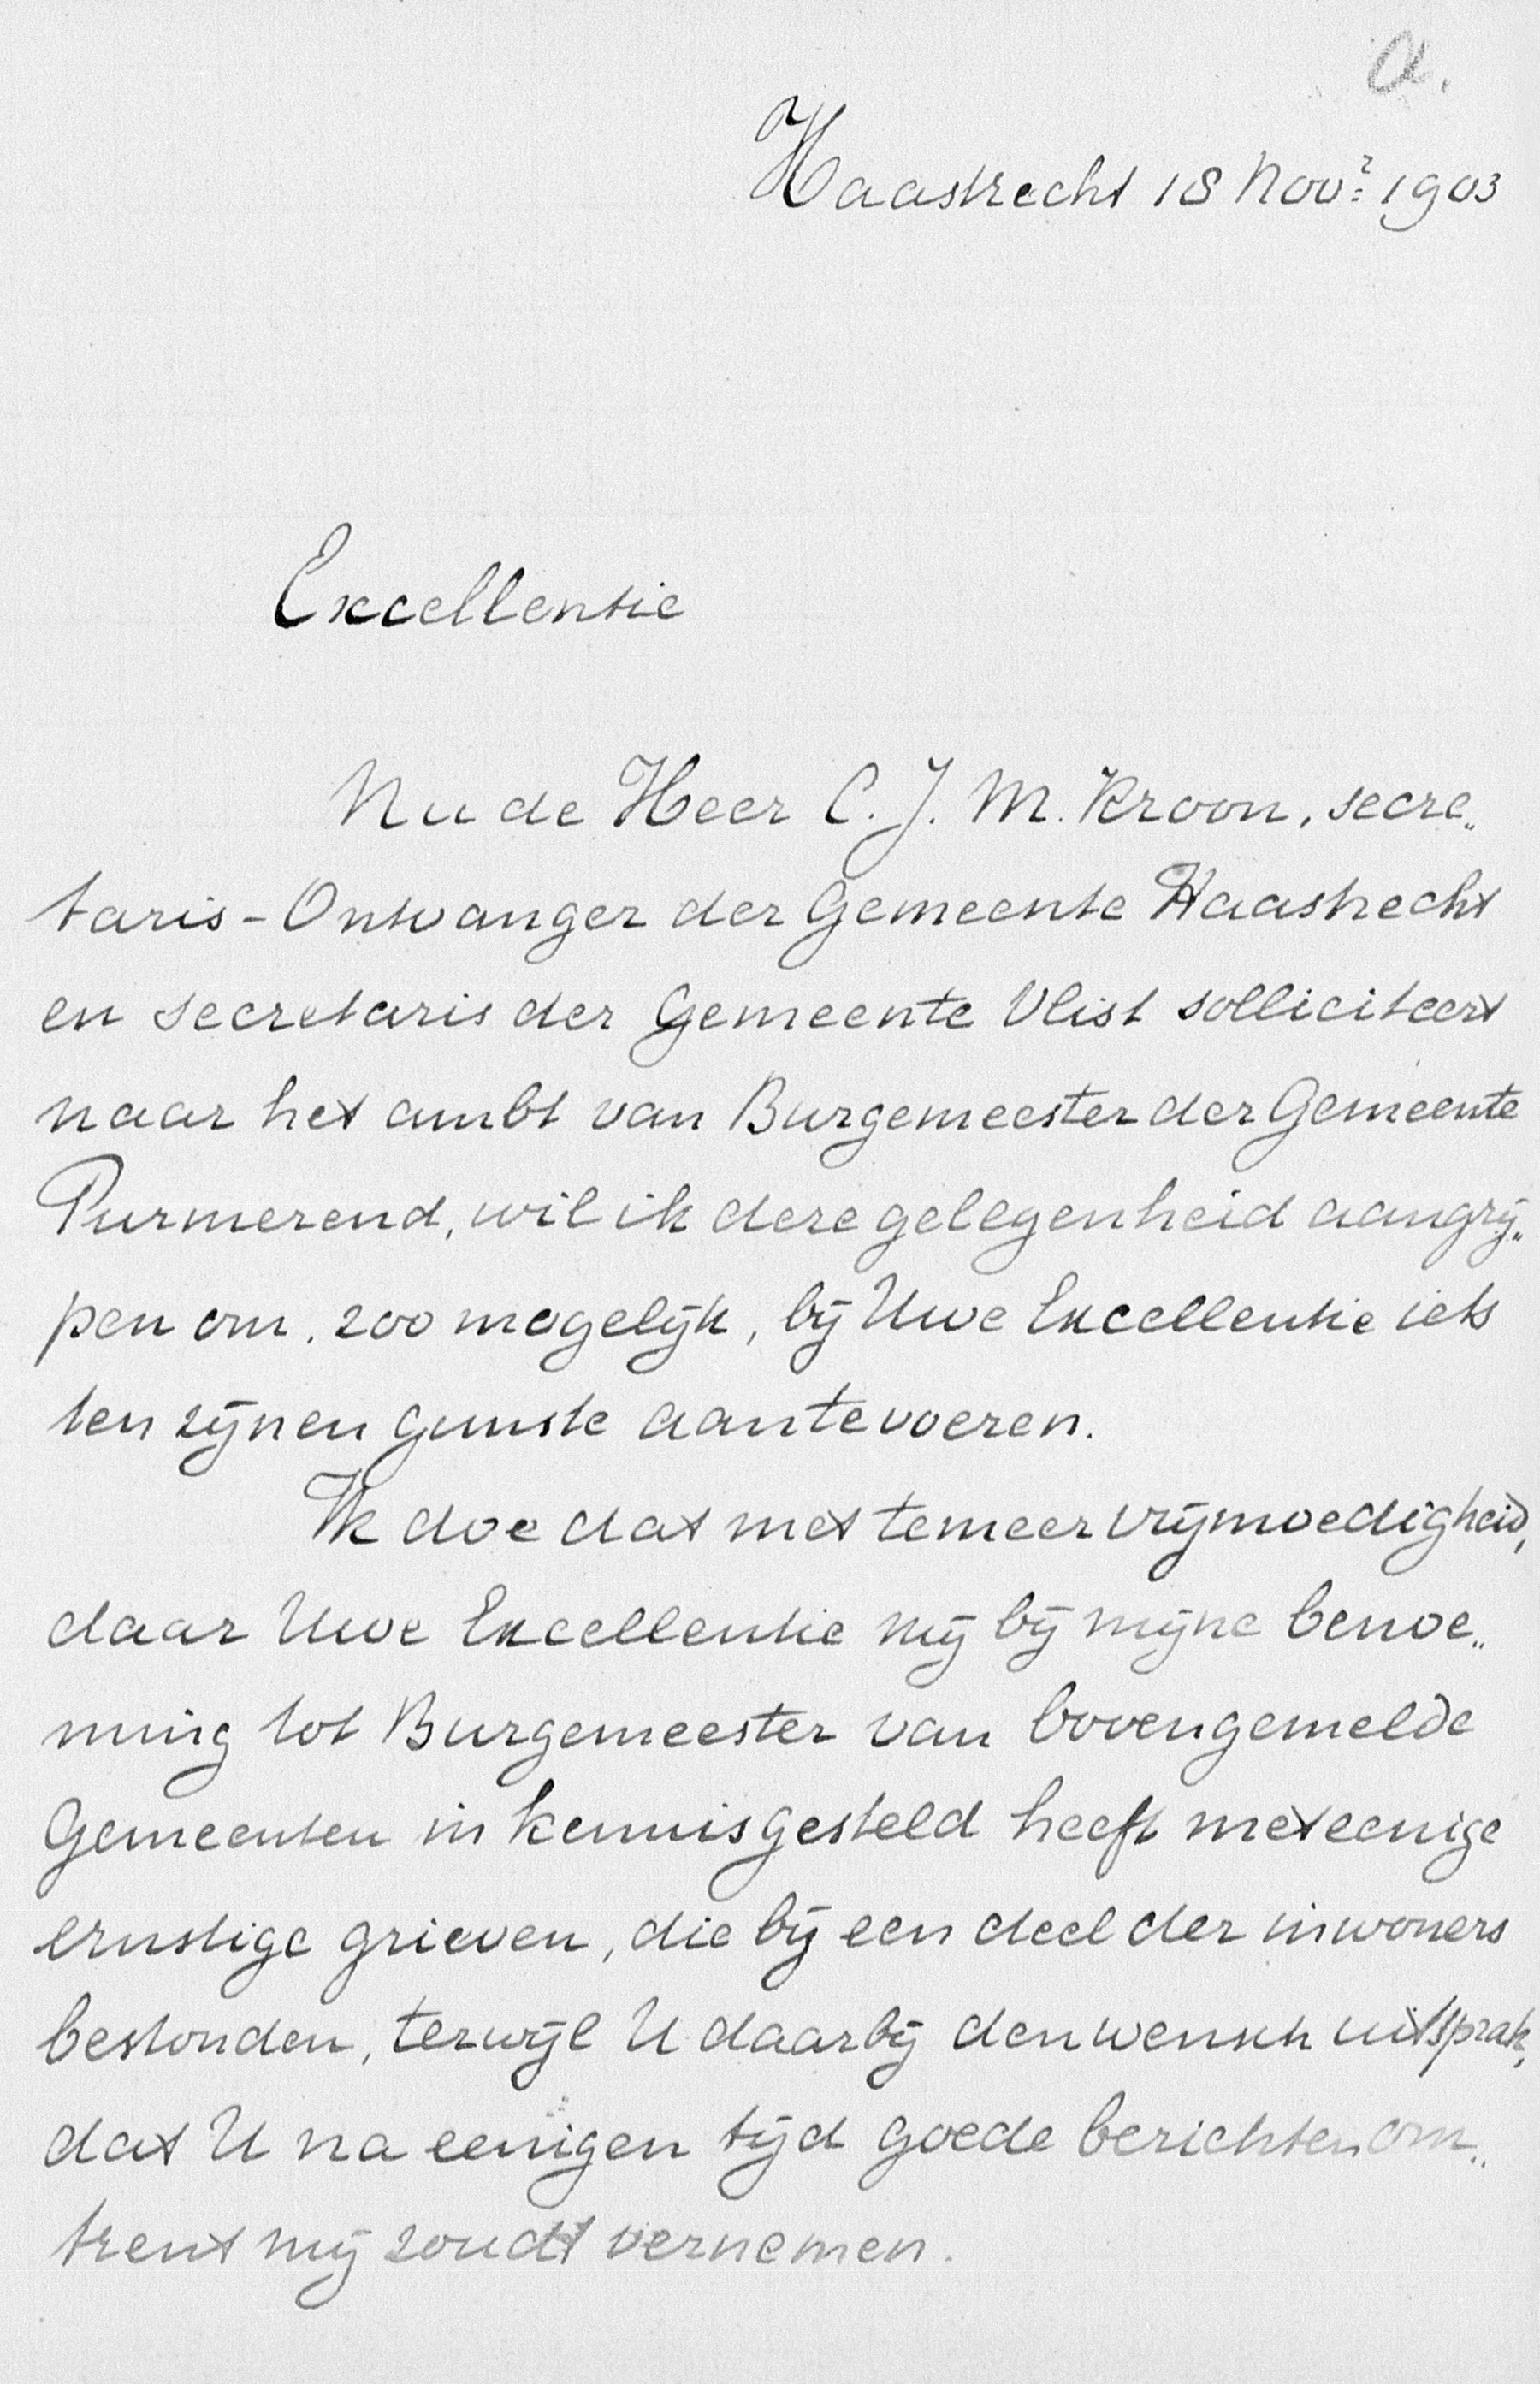 a.
Haastrecht 18 Novr 1903
Excellentie
Nu de Heer C. J. M. Kroon, secre„
taris-Ontvanger der Gemeente Haastrecht
en secretaris der Gemeente Vlist solliciteert
naar het ambt van Burgemeester der Gemeente
Purmerend, wil ik deze gelegenheid aangrij„
pen om, zoo mogelijk, bij Uwe Excellentie iets
ten zijnen gunste aantevoeren.
Ik doe dat met temeer vrijmoedigheid,
daar Uwe Excellentie mij bij mijne benoe„
ming tot Burgemeester van bovengemelde
Gemeenten in kennis gesteld heeft met eenige
ernstige grieven, die bij een deel der inwoners
bestonden, terwijl U daarbij den wensch uitsprak,
dat U na eenigen tijd goede berichten om„
trent mij zoudt vernemen.